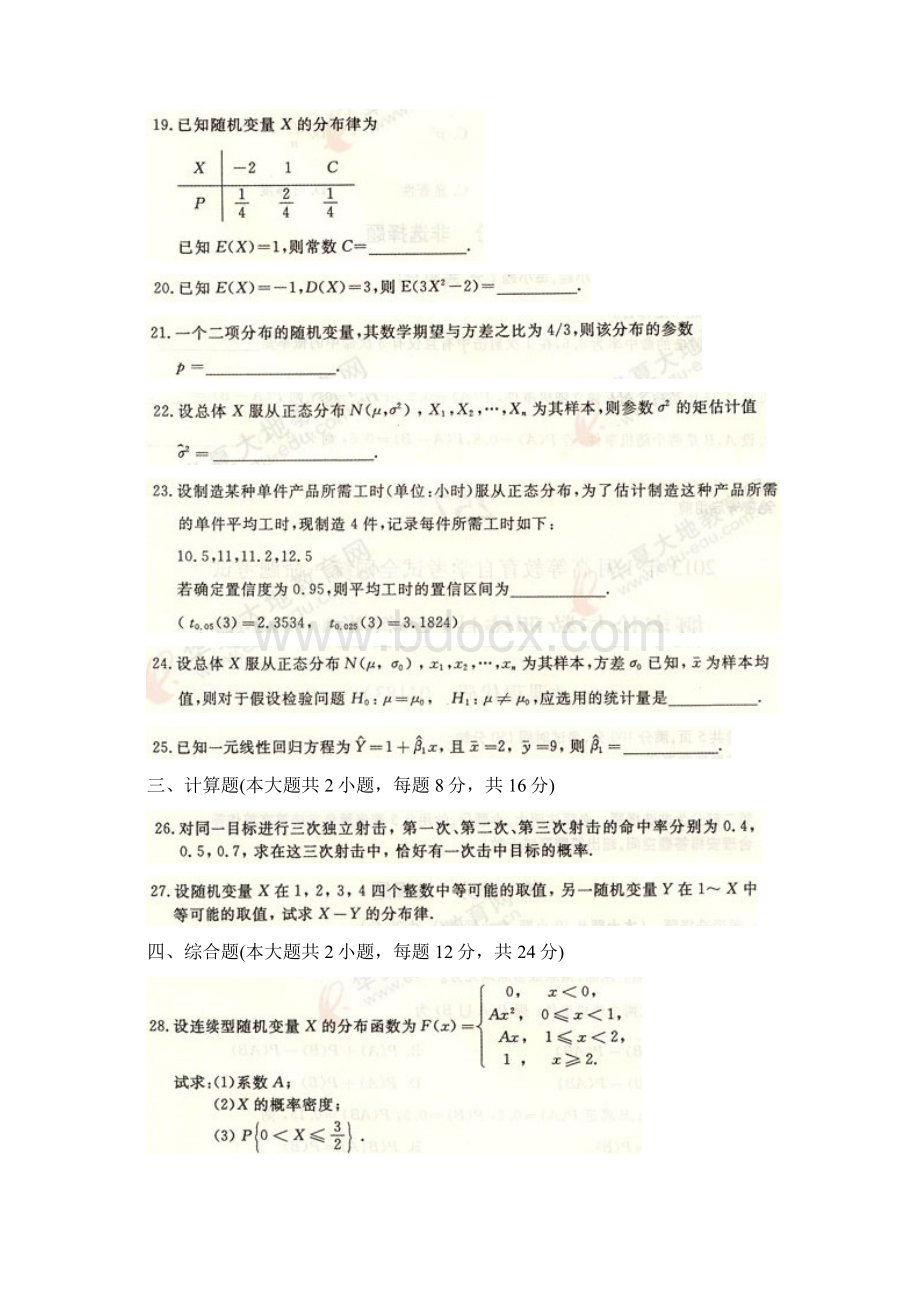 19.已知随机变量 X 的分布律为
X -2 1 C
P 1/4 2/4 1/4
已知 E(X)=1,则常数 C=________.
20.已知 E(X)=-1,D(X)=3,则 E(3X²-2)=________.
21.一个二项分布的随机变量,其数学期望与方差之比为 4/3,则该分布的参数
p=________.
22.设总体 X 服从正态分布 N(μ,σ²),X₁,X₂,…,Xₙ 为其样本,则参数 σ² 的矩估计值
σ̂²=________.
23.设制造某种单件产品所需工时(单位:小时)服从正态分布,为了估计制造这种产品所需
的单件平均工时,现制造 4 件,记录每件所需工时如下:
10.5,11,11.2,12.5
若确定置信度为 0.95,则平均工时的置信区间为________.
( t₀.₀₅(3)=2.3534, t₀.₀₂₅(3)=3.1824)
www.bdocx.com
24.设总体 X 服从正态分布 N(μ, σ₀),x₁,x₂,…,xₙ 为其样本,方差 σ₀ 已知,x̄ 为样本均
值,则对于假设检验问题 H₀:μ=μ₀, H₁:μ≠μ₀,应选用的统计量是________.
25.已知一元线性回归方程为 Ŷ=1+β̂₁x,且 x̄=2, ȳ=9,则 β̂₁=________.
三、计算题(本大题共 2 小题，每题 8 分，共 16 分)
26.对同一目标进行三次独立射击，第一次、第二次、第三次射击的命中率分别为 0.4,
0.5,0.7, 求在这三次射击中，恰好有一次击中目标的概率.
27.设随机变量 X 在 1, 2, 3, 4 四个整数中等可能的取值，另一随机变量 Y 在 1～ X 中
等可能的取值，试求 X-Y 的分布律.
四、综合题(本大题共 2 小题，每题 12 分，共 24 分)
28.设连续型随机变量 X 的分布函数为 F(x)={ 0, x<0,
Ax², 0⩽x<1,
Ax, 1⩽x<2,
1 , x⩾2.
试求:(1)系数 A;
(2)X 的概率密度;
(3) P{0<X⩽3/2} .